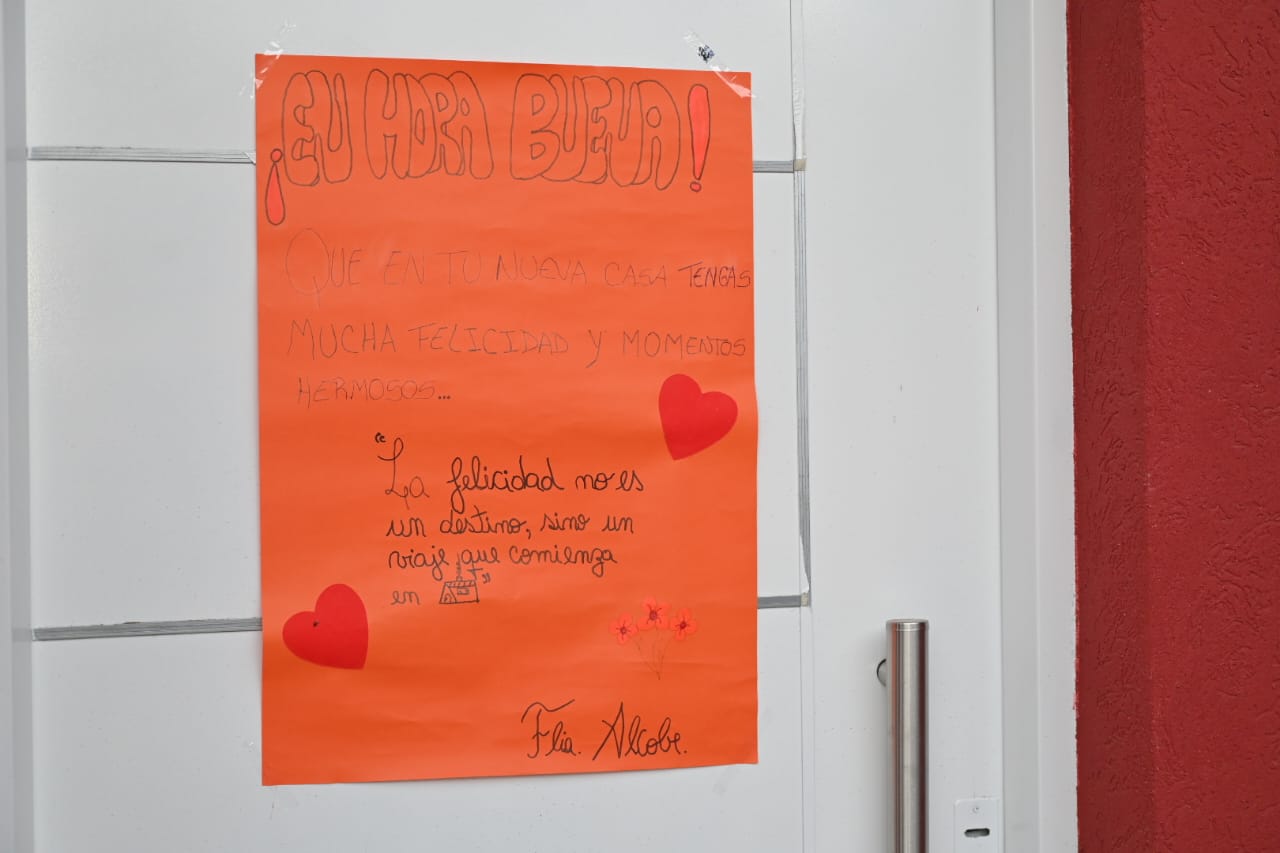 ¡EN HORA BUENA!
QUE EN TU NUEVA CASA TENGAS
MUCHA FELICIDAD Y MOMENTOS
HERMOSOS...
"La felicidad no es
un destino, sino un
viaje que comienza
en "
Flia. Alcobe.